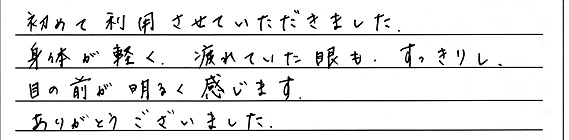 初めて利用させていただきました.
身体が軽く、疲れていた眼も、すっきりし、
目の前が明るく感じます.
ありがとうございました.